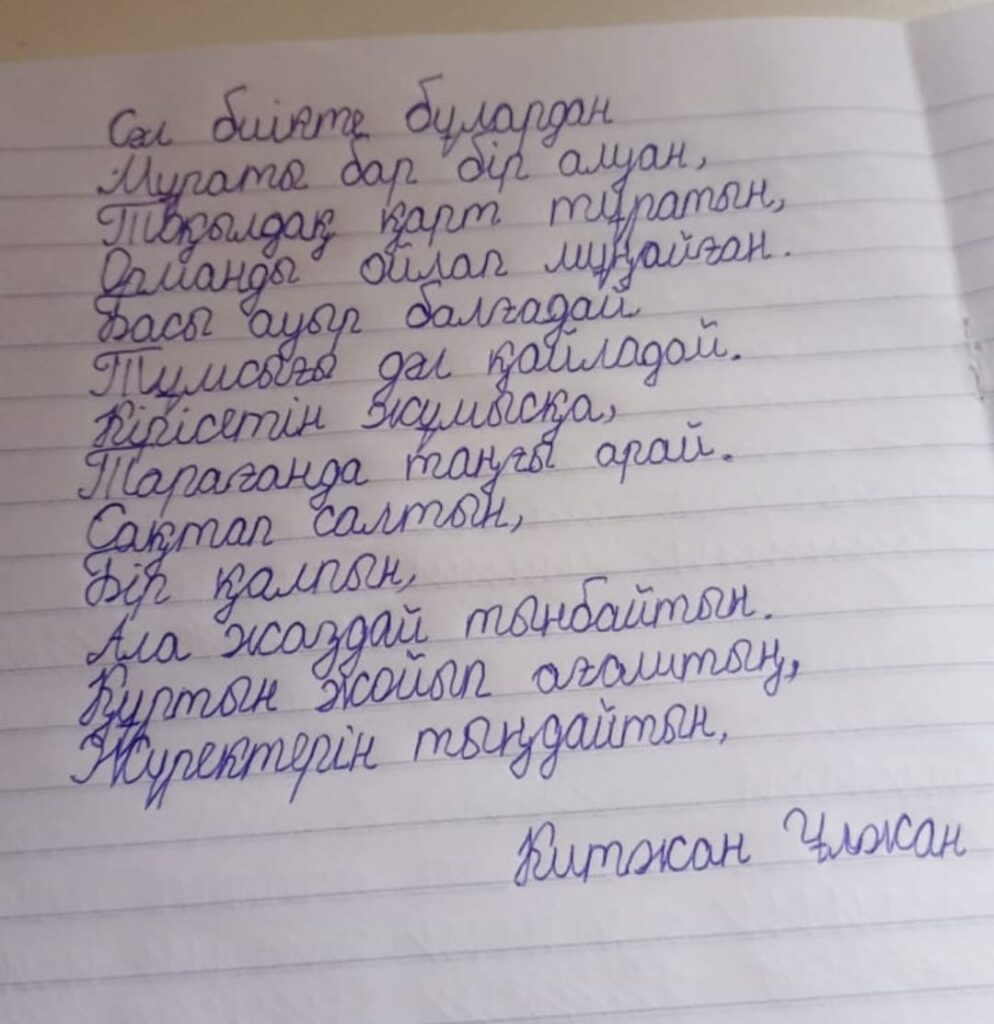 Сәл биікте бұлардан
Мұраты бар бір алуан,
Тоқылдақ қарт тұратын,
Орманды ойлап мұңайған.
Басы ауыр балғадай
Тұмсығы дәл қайладай.
Кірісетін жұмысқа,
Тарағанда таңғы арай.
Сақтап салтын,
Бір қалпын,
Ала жаздай тынбайтын.
Құртын жойып ағаштың,
Жүректерін тыңдайтын,
Китжан Ұлжан